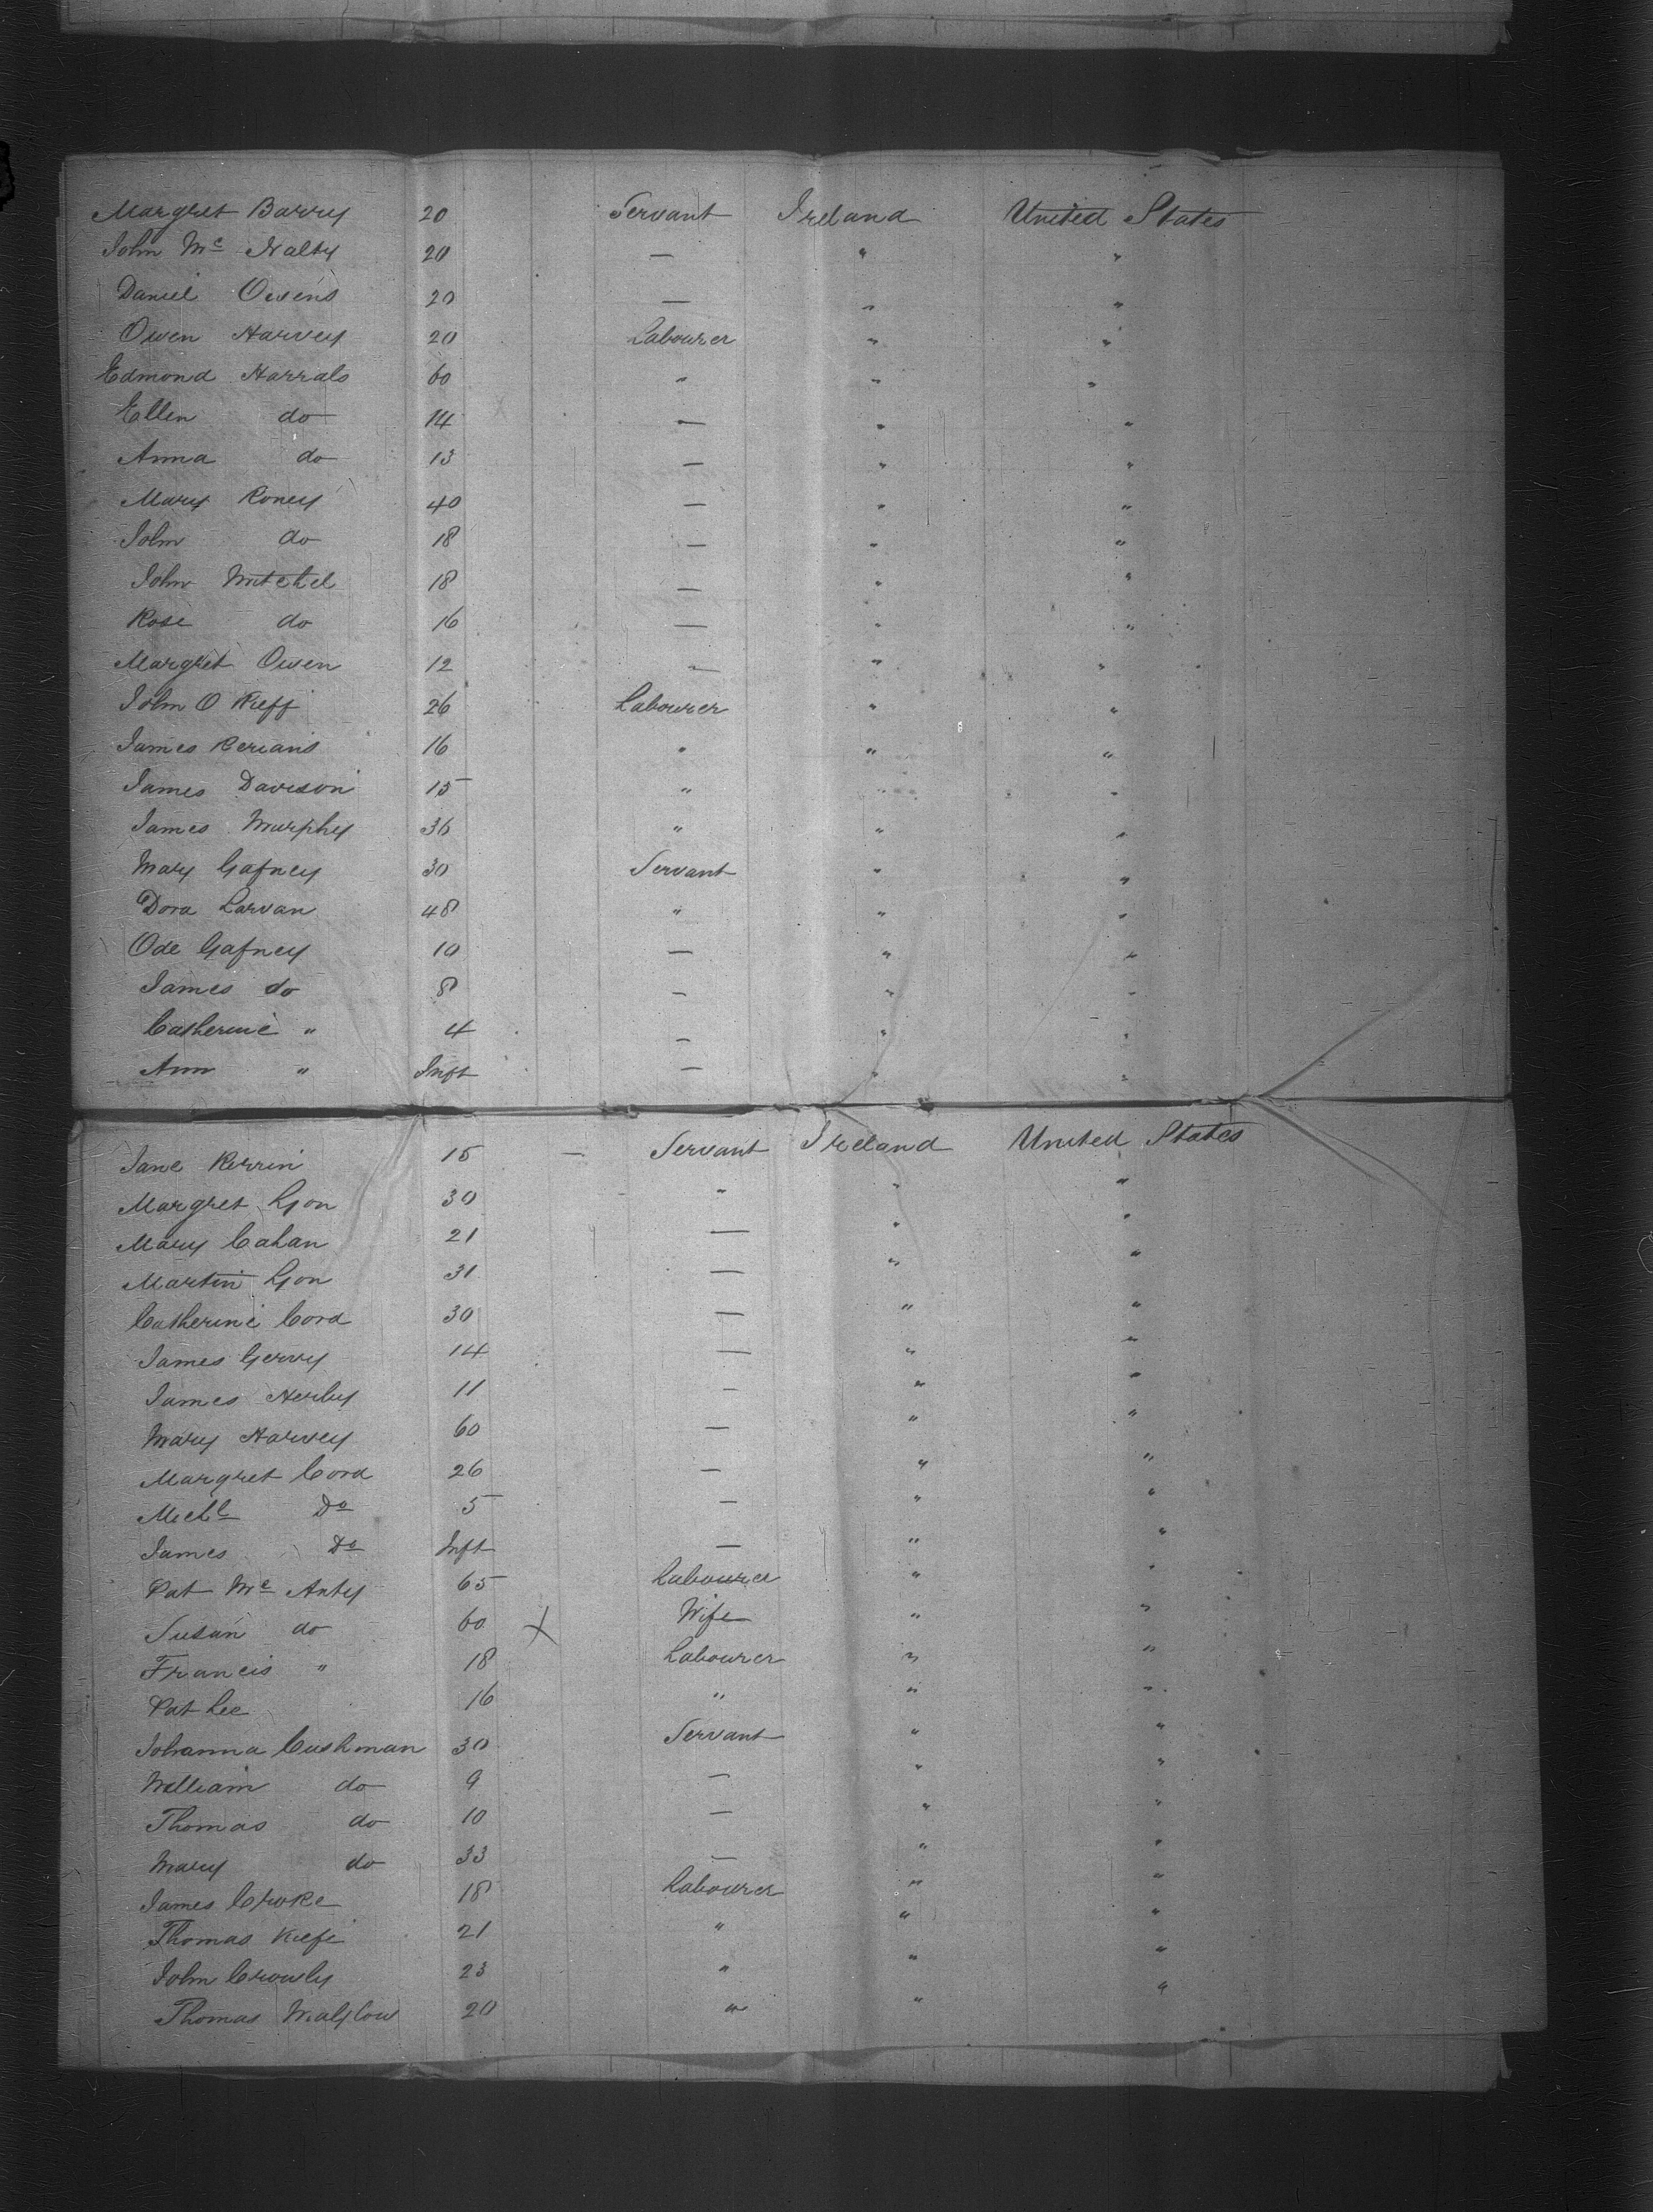 Margret Barry 20 Servant Ireland United States
John Mc Nalty 20 — " "
Daniel Owens 20 — " "
Owen Harvey 20 Labourer " "
Edmond Harrals 60 " " "
Ellen do 14 — " "
Anna do 13 — " "
Mary Roney 40 — " "
John do 18 — " "
John Mitchel 18 — " "
Rose do 16 — " "
Margret Owen 12 — " "
John O Kieff 26 Labourer " "
James Kerians 16 " " "
James Davison 15 " " "
James Murphy 36 " " "
Mary Gafney 30 Servant " "
Dora Larvan 48 " " "
Ode Gafney 10 — " "
James do 8 — " "
Catherine " 4 — " "
Ann " Inft — " "
Jane Kerrin 15 — Servant Ireland United States
Margret Lyon 30 " " "
Mary Cahan 21 — " "
Martin Lyon 31 — " "
Catherine Cord 30 — " "
James Gervy 14 — " "
James Herby 11 — " "
Mary Harvey 60 — " "
Margret Cord 26 — " "
Michl Do 5 — " "
James Do Inft — " "
Pat Mc Anty 65 Labourer " "
Susan do 60 X Wife " "
Francis " 18 Labourer " "
Pat Lee 16 " " "
Johanna Cushman 30 Servant " "
William do 9 — " "
Thomas do 10 — " "
Mary do 33 — " "
James Croke 18 Labourer " "
Thomas Kiefe 21 " " "
John Crowly 23 " " "
Thomas 20 " " "